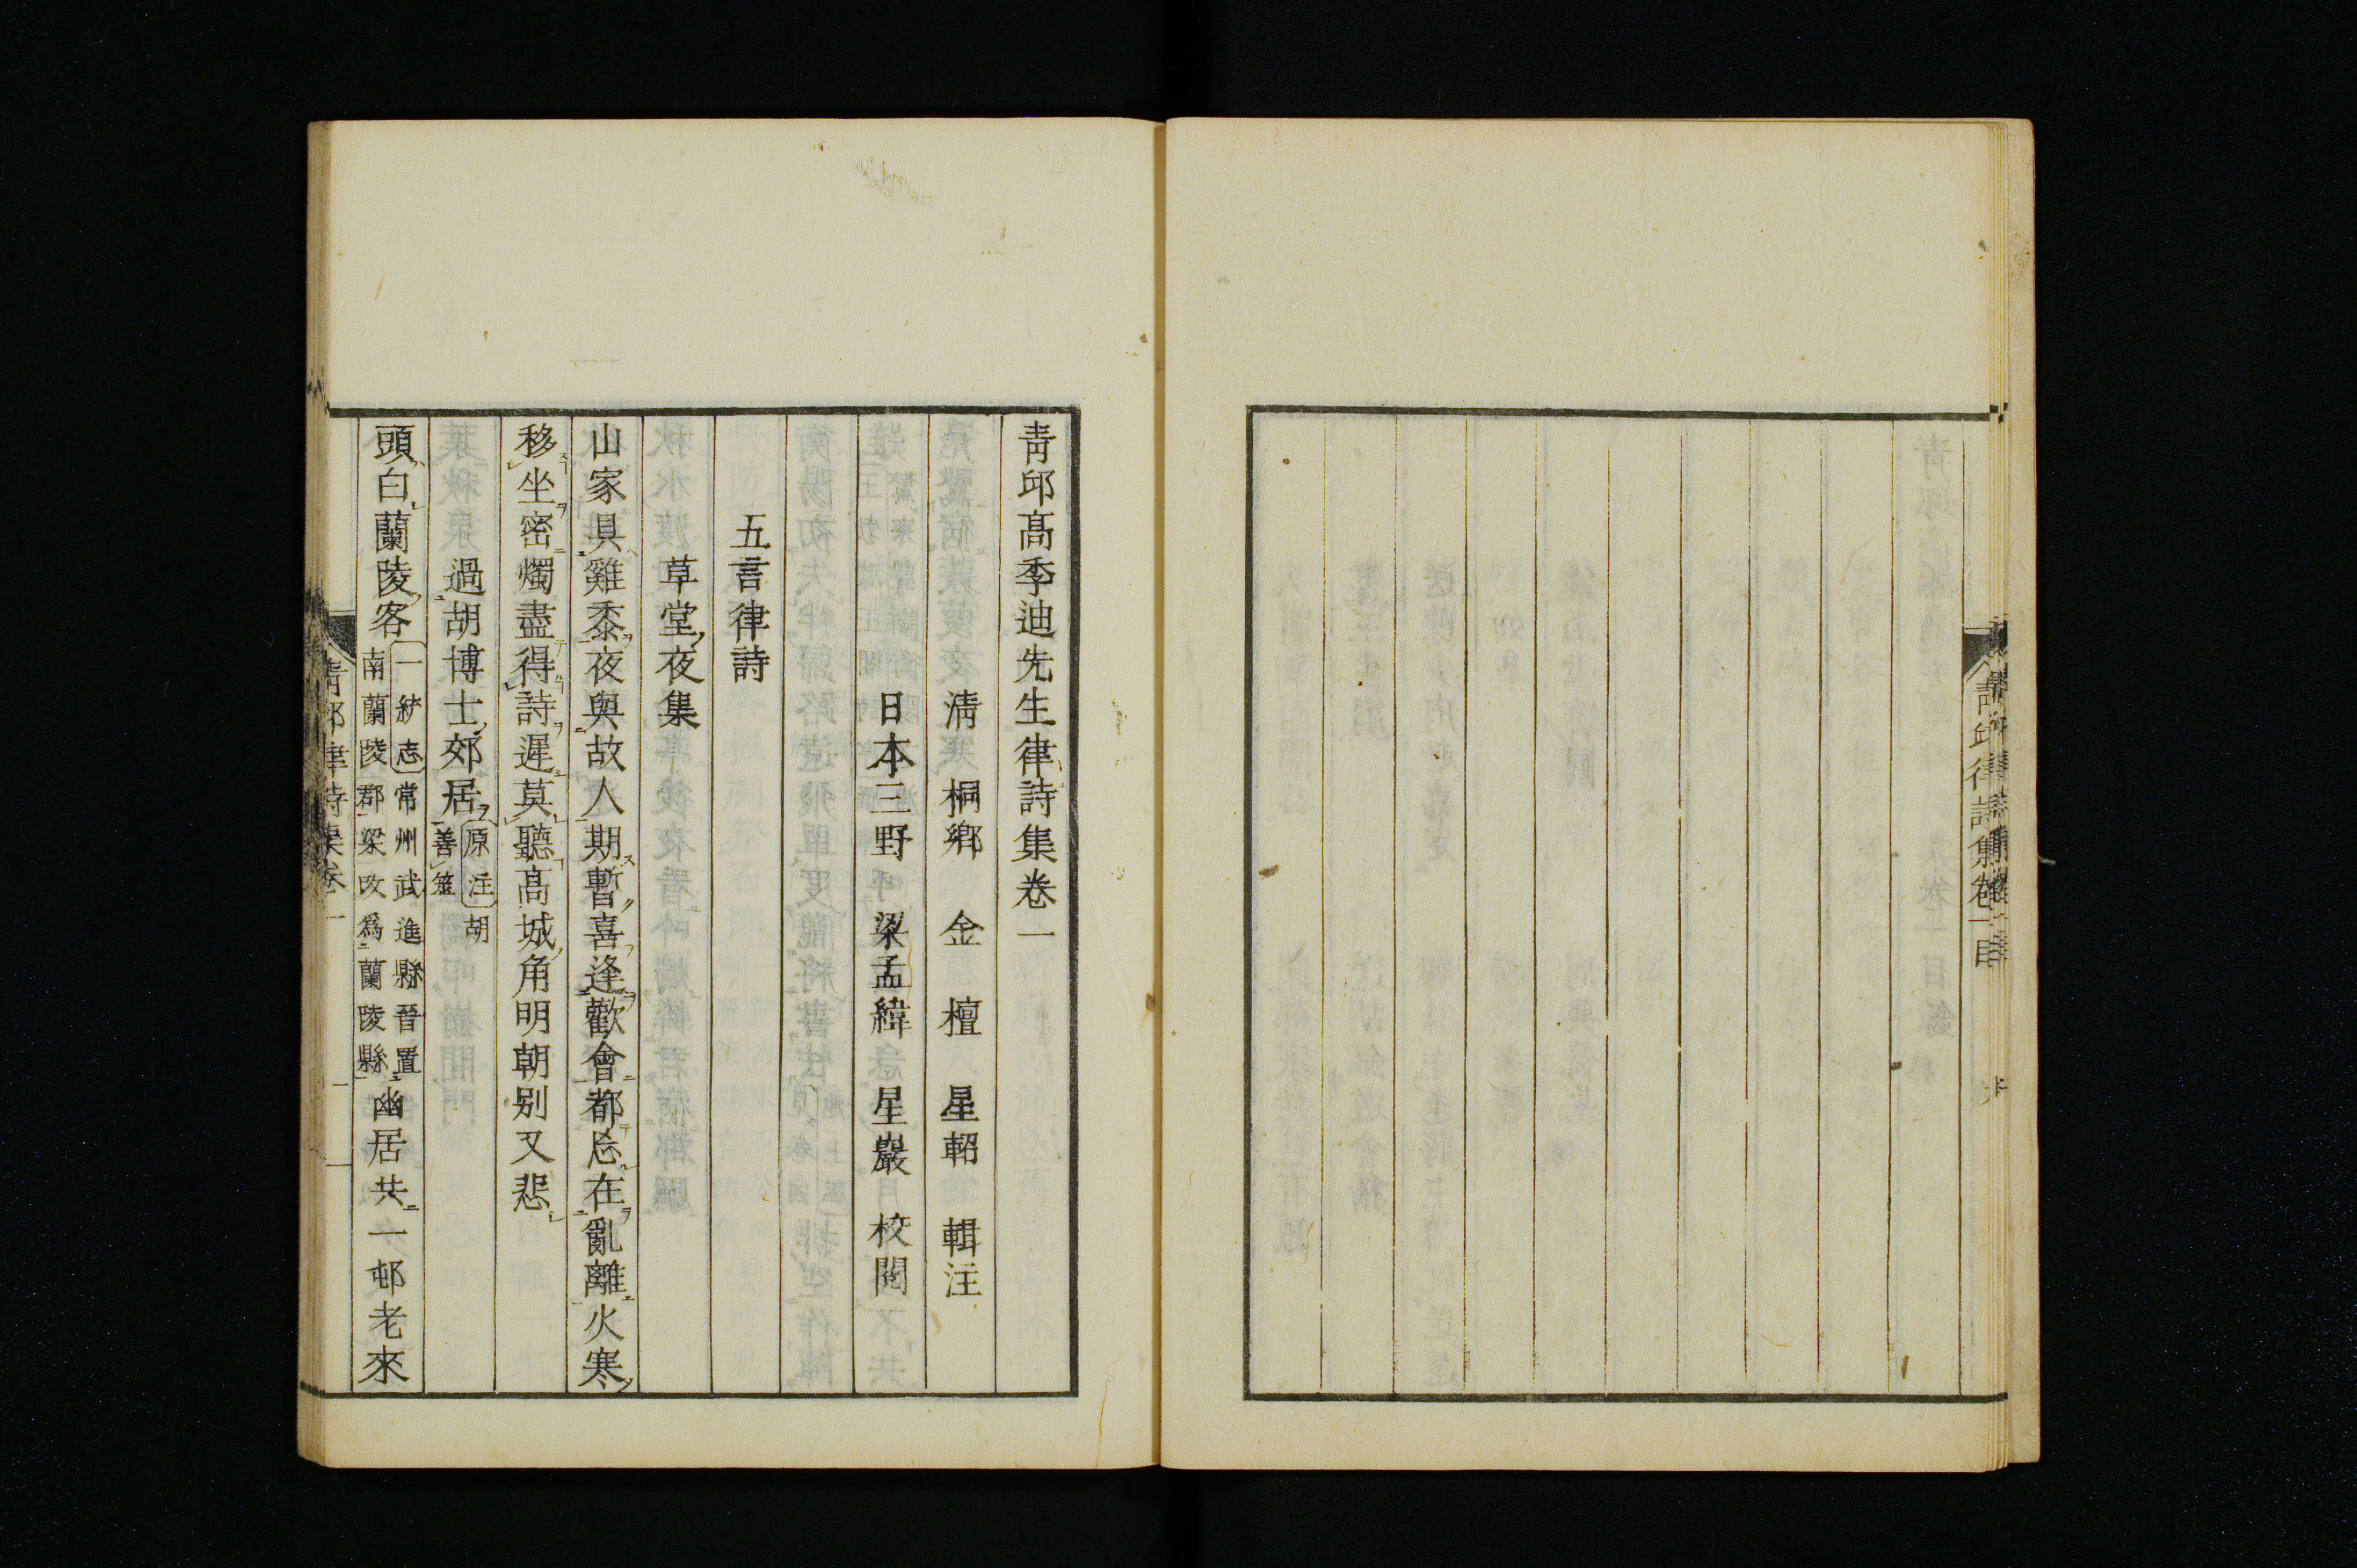 青邱律詩集卷一目
青邱高季迪先生律詩集卷一
清 桐鄉 金 檀 星軺 輯注
日本三野 梁孟緯 星巖 校閱
五言律詩
草堂夜集
山家具雞黍夜與故人期暫喜逢歡會都忘在亂離火寒
移坐密燭盡得詩遲莫聽高城角明朝別又悲
過胡博士郊居原注胡
善筮
頭白蘭陵客一統志常州武進縣晉置
南蘭陵郡梁改爲蘭陵縣幽居共一邨老來
青邱律詩集卷一